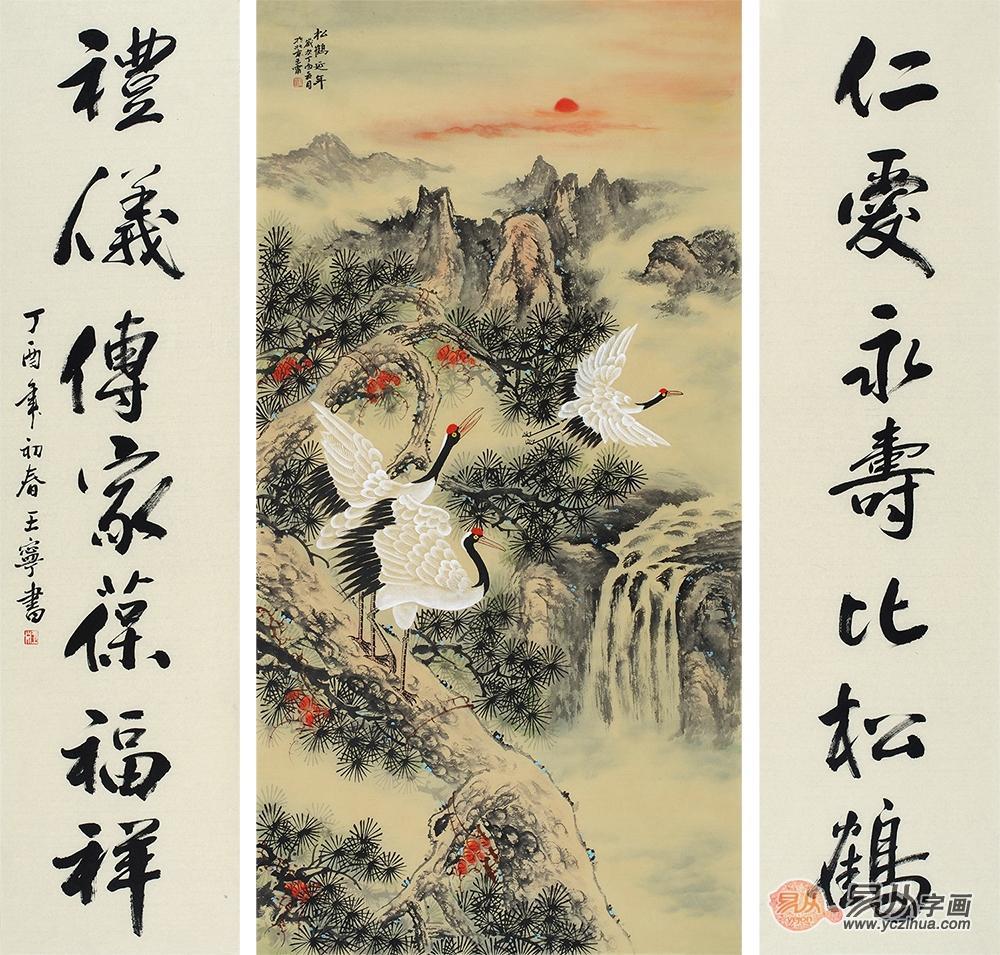 仁愛永壽比松鶴
松鶴延年
歲次丁酉五月
禮儀傳家葆福祥
丁酉年初春王寧書
易从字画
www.yczihua.com